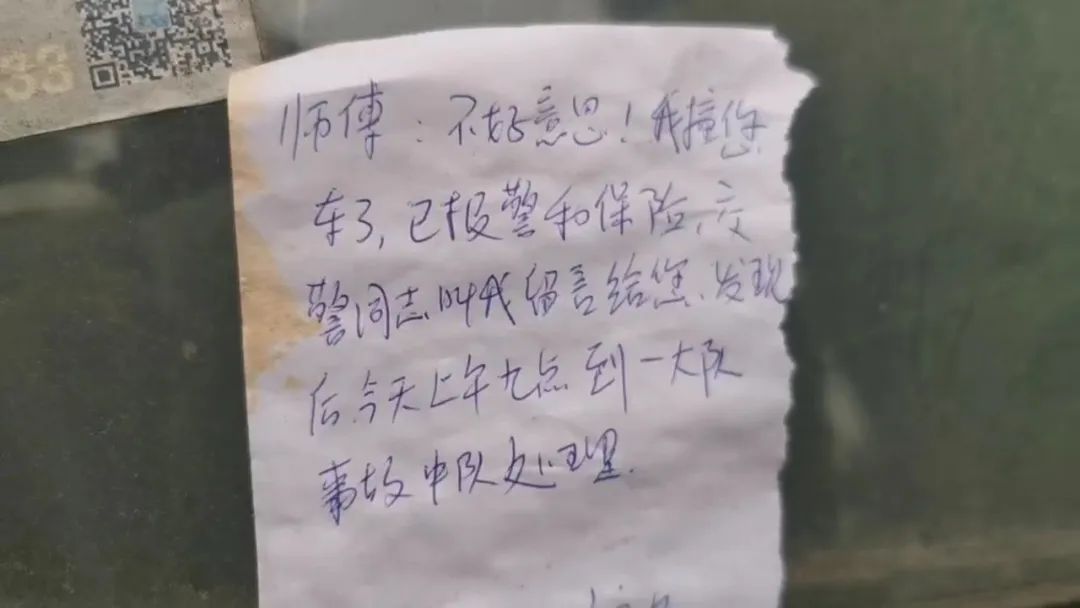 33
师傅：不好意思！我撞您
车了，已报警和保险，交
警同志叫我留言给您，发现
后，今天上午九点到一大队
事故中队处理.